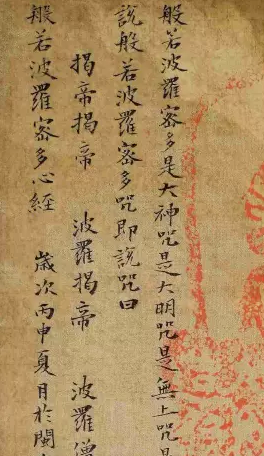 般若波羅密多是大神咒是大明咒是無上咒是
說般若波羅密多咒即說咒曰
揭帝揭帝　波羅揭帝　波羅僧
般若波羅密多心經　歲次丙申夏月於閩